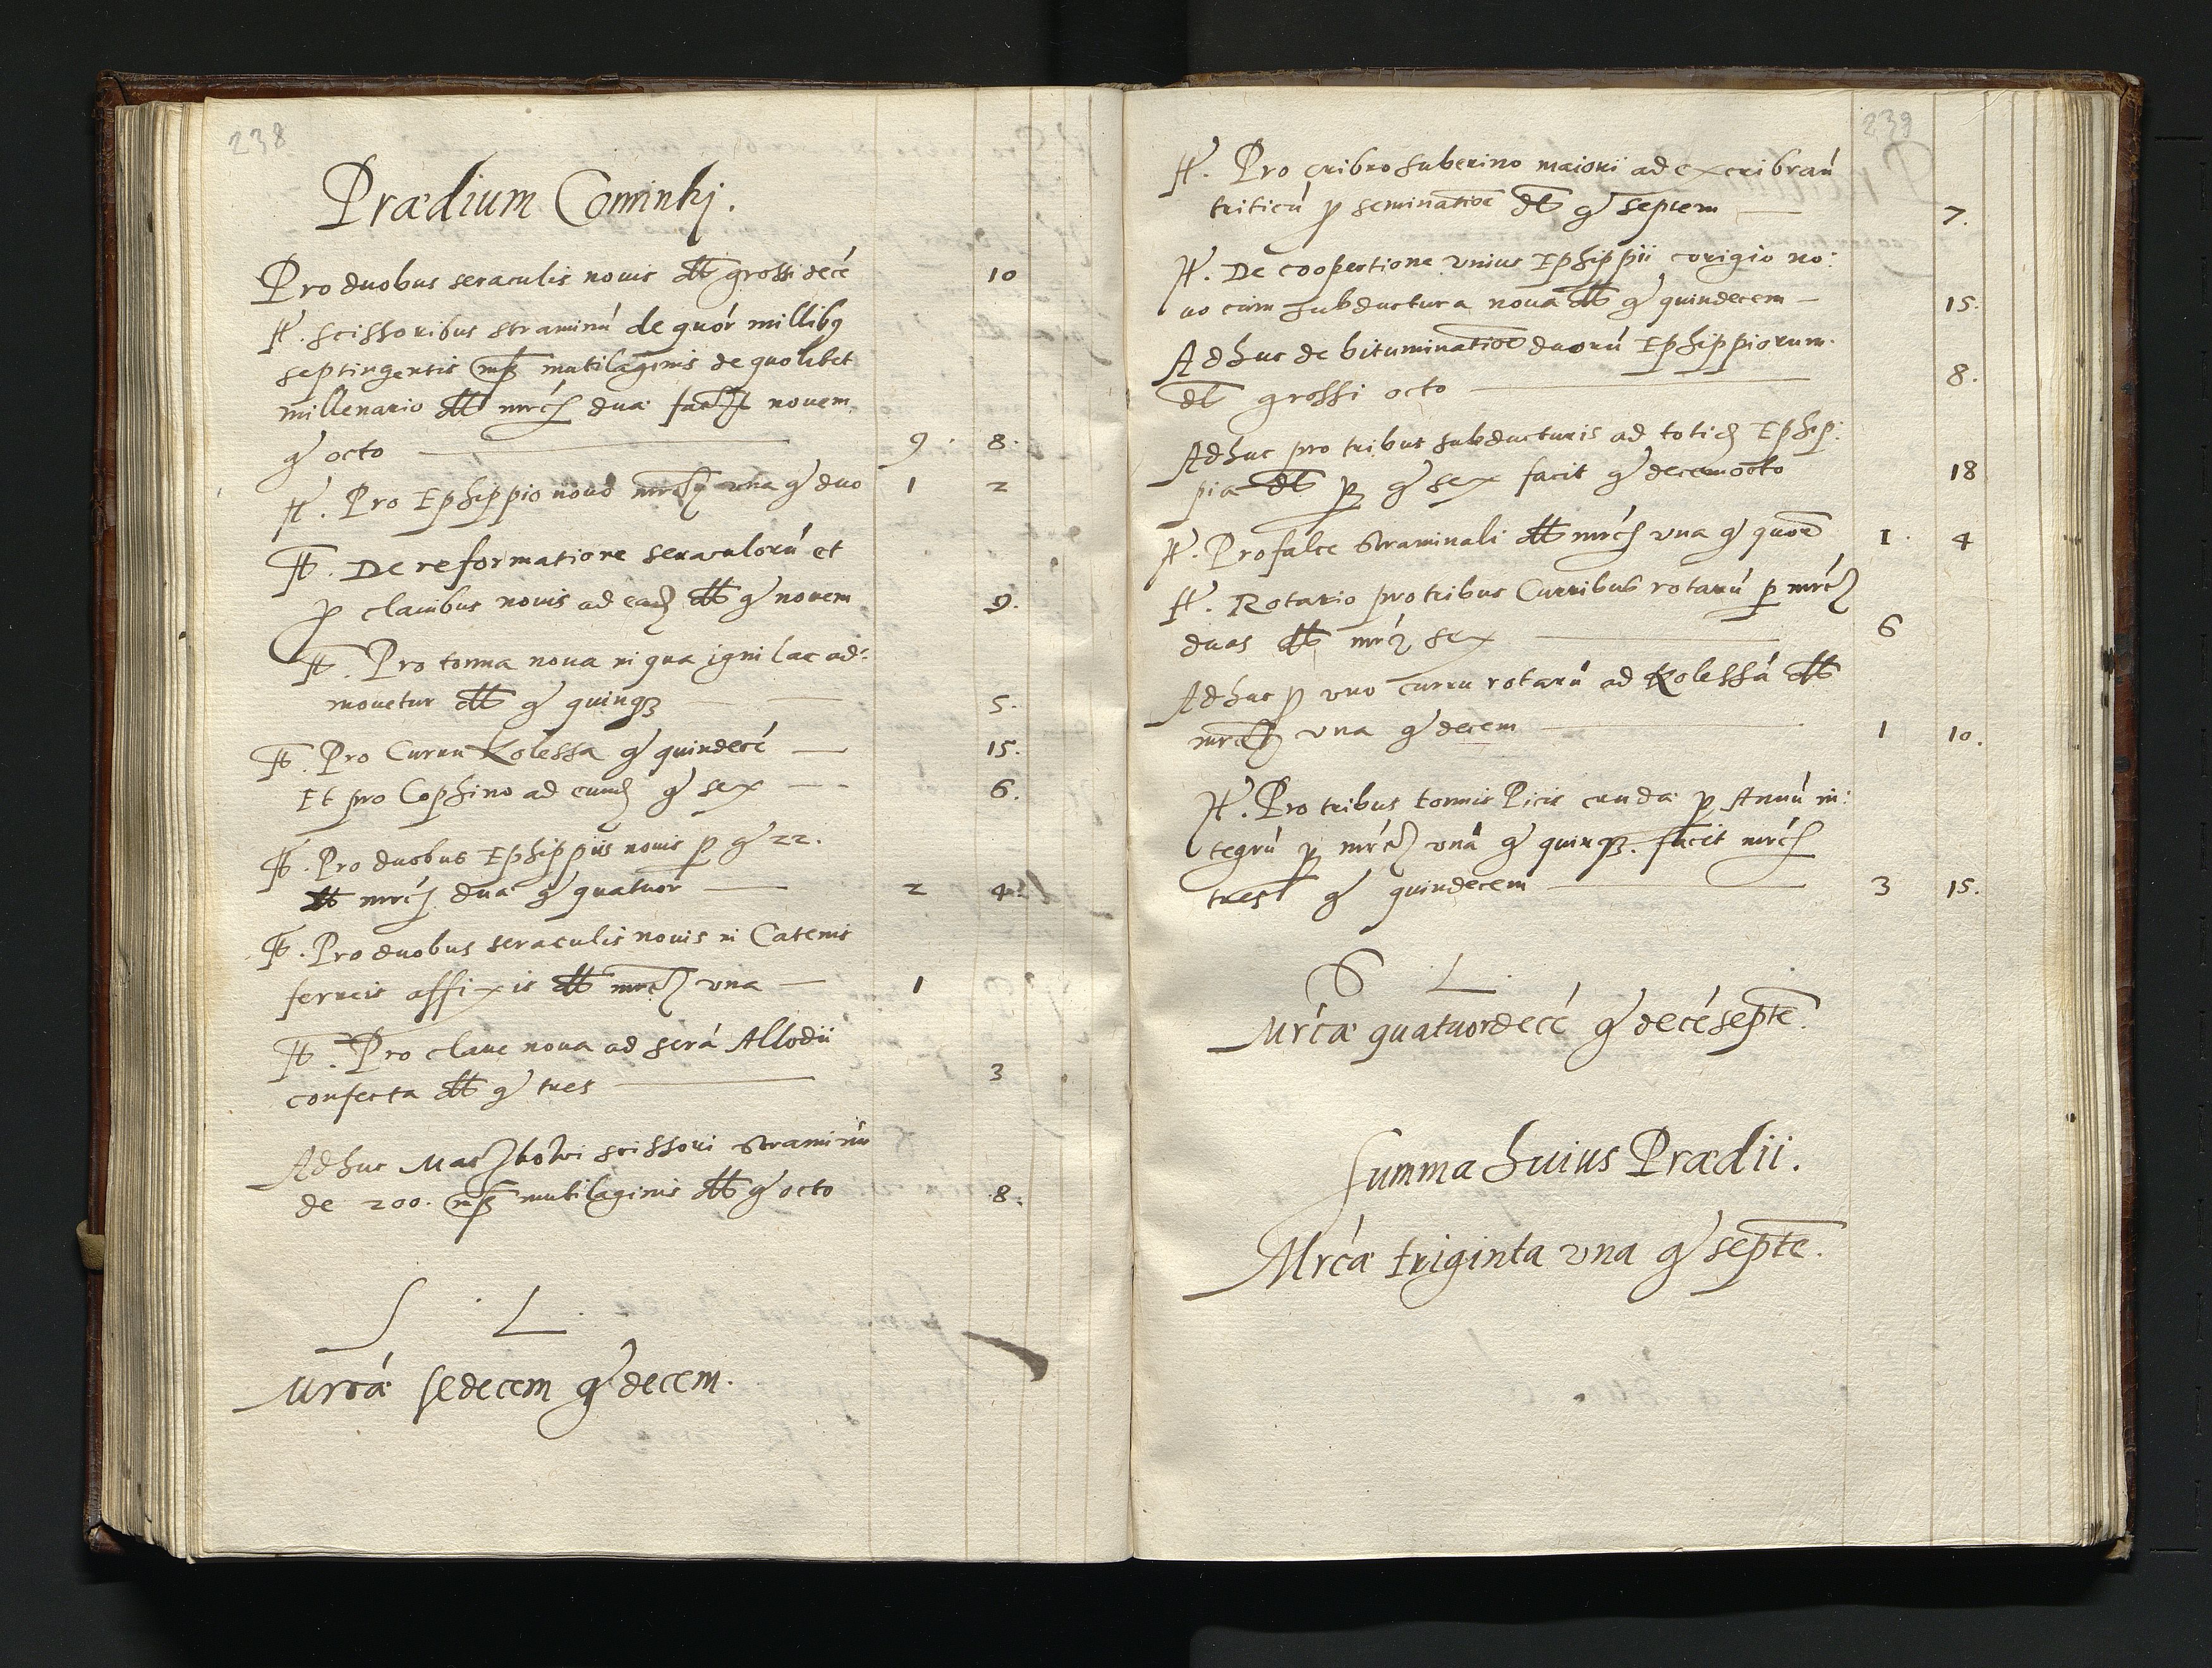 238
Prædium Cominkj.
Pro duobus seraculis nouis dtt grossi decē 10
Itt. scissoribus straminū de quór millibq
septingentis mutilaginis de quolibet
millenario dtt mrcę duæ facit nouem
gr octo 9. 8.
Itt. Pro Ephippio nouo mrcą vna gr duo 1 2
Itt. De reformatione seraculorū et
p clauibus nouis ad ead dtt gr nouem 9.
Itt. Pro torma noua in qua igni lac ad:
mouetur dtt gr quinqz 5.
Itt. Pro Curru Kolessa gr quindecē 15.
Et pro Cophino ad eund gr sex 6.
Itt. Pro duobus Ephippiis nouis p gr 22.
dtt mrcę duæ gr quatuor 2 4.
Itt. Pro duobus seraculis nouis in Catenis
ferreis affixis dtt mrcą vna 1
Itt. Pro claue noua ad será Allodii
confecta dtt gr tres 3
Adhuc scissori straminū
de 200. mutilaginis dtt gr octo 8.
S. L.
Mrcæ sedecem gr decem.
239
Itt. Pro cribro suberino maiori ad excribran̄
triticū p seminatioē dtt gr septem 7.
Itt. De coopertione vnius Ephippii corigio no:
uo cum subductura noua dtt gr quindecem 15.
Adhuc de bituminatioē duorū Ephippiorum.
dtt grossi octo 8.
Adhuc pro tribus subducturis ad totid Ephip:
pia dtt p gr sex facit gr decemocto 18
Itt. Pro falce straminali dtt mrcą vna gr quōr 1. 4
Itt. Rotario pro tribus Curribus rotarū p mrcę
duas dtt mrcę sex 6
Adhuc p vno curru rotarū ad Kolessá dtt
mrcą vna gr decem 1 10.
Itt. Pro tribus tonnis Picis crudæ p Annū in:
tegrū p mrcą vná gr quinqz. facit mrcę
tres gr quindecem 3 15.
S. L.
Mrcæ quatuordecē gr decéseptē.
Summa huius Prædii.
Mrcæ triginta vna gr septē.